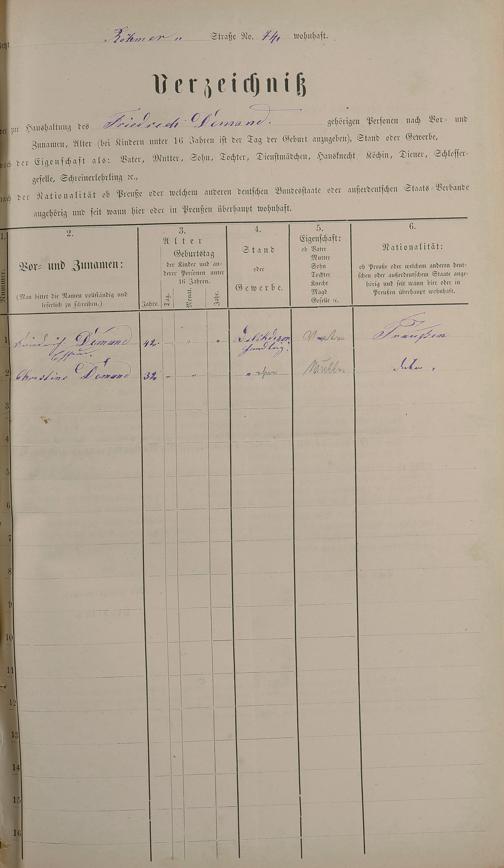 Römer „ Straße No. 14, wohnhaft.
Verzeichniß
der zur Haushaltung des Friedrich Demand. gehörigen Personen nach Vor- und
Zunamen, Alter (bei Kindern unter 16 Jahren ist der Tag der Geburt anzugeben), Stand oder Gewerbe,
nach der Eigenschaft als: Vater, Mutter, Sohn, Tochter, Dienstmädchen, Hausknecht, Köchin, Diener, Schlosser-
geselle, Schreinerlehrling ꝛc.,
nach der Nationalität ob Preuße oder welchem anderen deutschen Bundesstaate oder außerdeutschen Staats-Verbande
angehörig und seit wann hier oder in Preußen überhaupt wohnhaft.
1. 2. 3. 4. 5. 6.
Nummer.
Vor- und Zunamen:
(Man bittet die Namen vollständig und
leserlich zu schreiben.)
Alter
Geburtstag
der Kinder und an-
derer Personen unter
16 Jahren.
Jahre. Tag. Monat. Jahr.
Stand
oder
Gewerbe.
Eigenschaft:
ob Vater
Mutter
Sohn
Tochter
Knecht
Magd
Geselle ꝛc.
Nationalität:
ob Preuße oder welchem anderen deut-
schen oder außerdeutschen Staate ange-
hörig und seit wann hier oder in
Preußen überhaupt wohnhaft.
1 Friedrich Demand 42 " " " handlung. Vater Preußen
2 Christine Demand 32 " " " Mutter
3
4
5
6
7
8
9
10
11
12
13
14
15
16